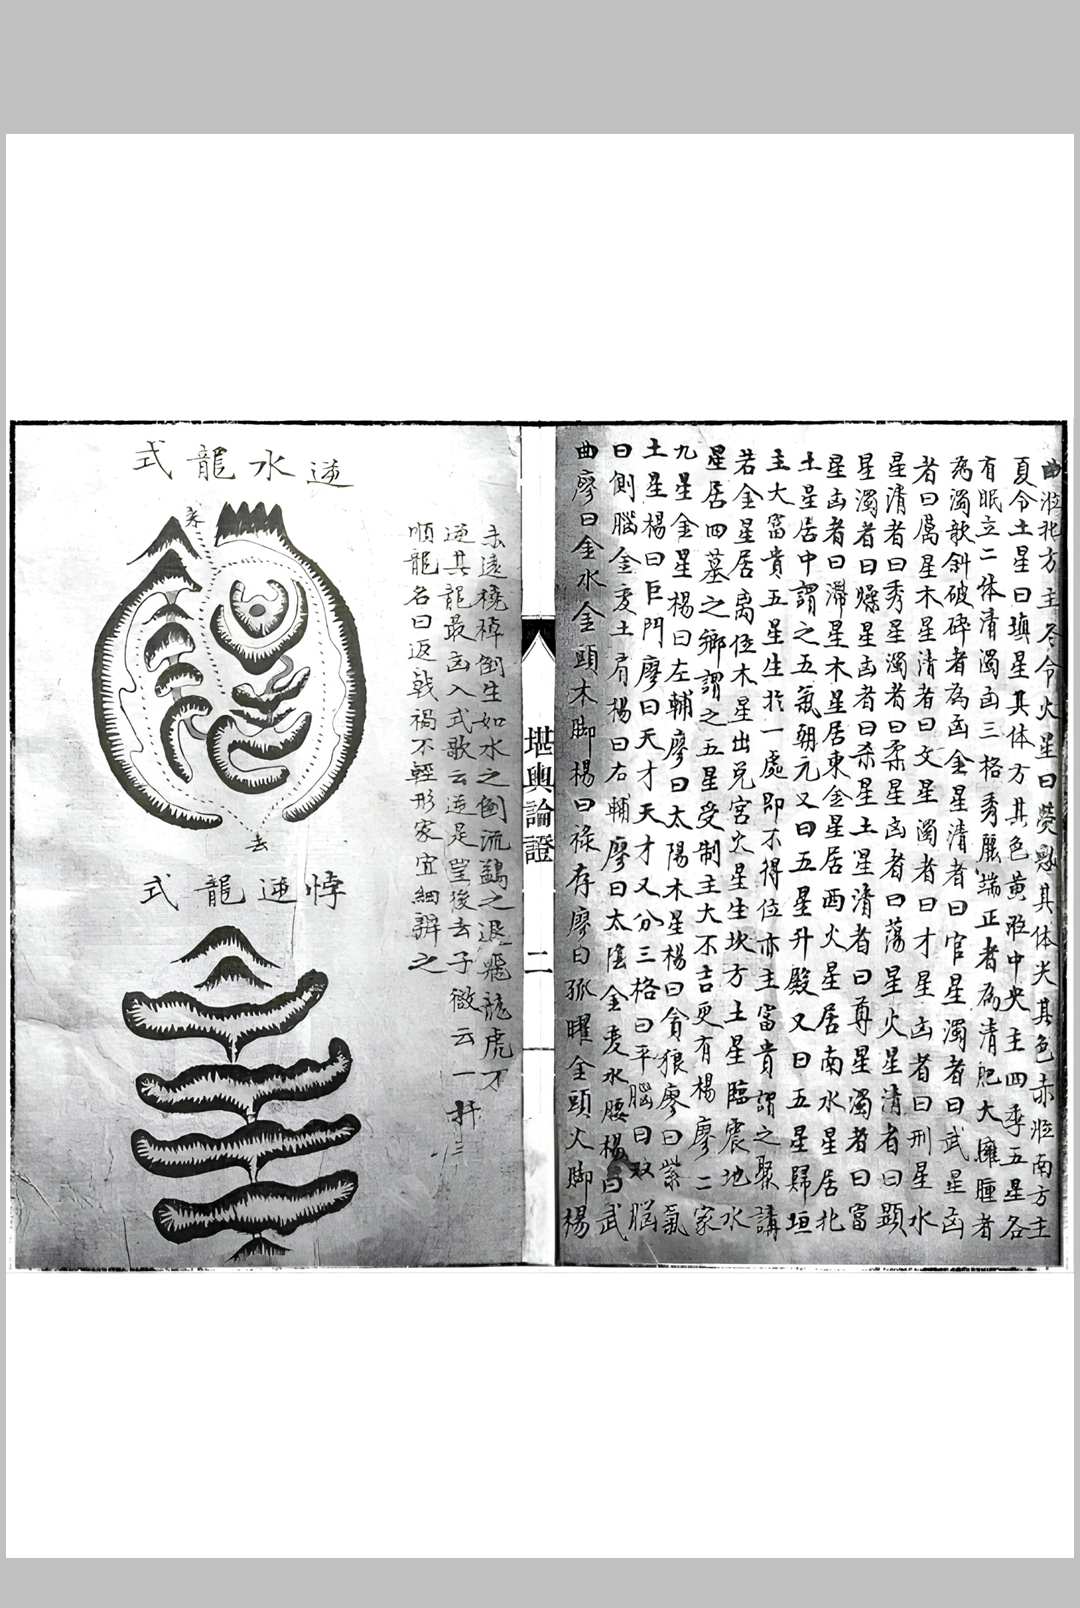 曲涖北方主冬令火星曰熒惑其体尖其色赤涖南方主
夏令土星曰填星其体方其色黄涖中央主四季五星各
有眠立二体清濁凶三格秀麗端正者為清肥大臃腫者
為濁欹斜破碎者為凶金星清者曰官星濁者曰武星凶
者曰厲星木星清者曰文星濁者曰才星凶者曰刑星水
星清者曰秀星濁者曰柔星凶者曰蕩星火星清者曰顕
星濁者曰燥星凶者曰杀星土星清者曰尊星濁者曰富
星凶者曰滯星木星居東金星居西火星居南水星居北
土星居中謂之五氣朝元又曰五星升殿又曰五星歸垣
主大富貴五星生於一處即不得位亦主富貴謂之聚講
若金星居离位木星出兑宮火星生坎方土星臨震地水
星居四墓之鄉謂之五星受制主大不吉更有楊廖二家
九星金星楊曰左輔廖曰太陽木星楊曰貪狼廖曰紫氣
土星楊曰巨門廖曰天才天才又分三格曰平腦曰双腦
曰側腦金変土肩楊曰右輔廖曰太陰金変水腰楊曰武
曲廖曰金水金頭木脚楊曰禄存廖曰孤曜金頭火脚楊
堪輿論證
二
逆水龍式
来
去
悖逆龍式
去遠橈棹倒生如水之倒流鷁之退飛龍虎不
逆其龍最凶入式歌云逆是望後去子微云一
順龍名曰返戟禍不輕形家宜細辨之